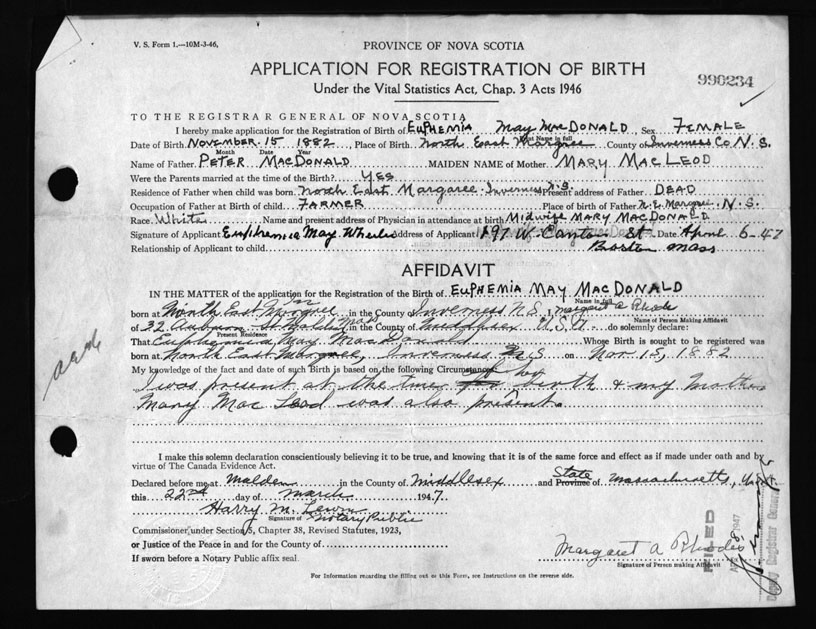 V. S. Form 1.—10M-3-46,
PROVINCE OF NOVA SCOTIA
APPLICATION FOR REGISTRATION OF BIRTH
990234
Under the Vital Statistics Act, Chap. 3 Acts 1946
TO THE REGISTRAR GENERAL OF NOVA SCOTIA
I hereby make application for the Registration of Birth of EUPHEMIA MAY MACDONALD Sex FEMALE
Print Name in full
Date of Birth NOVEMBER 15 1882, Place of Birth North East Margree County of Inverness Co N.S.
Month Date Year
Name of Father PETER MACDONALD MAIDEN NAME of Mother MARY MACLEOD
Were the Parents married at the time of the Birth? YES
Residence of Father when child was born North East Margaree Inverness N.S. Present address of Father DEAD
Occupation of Father at Birth of child FARMER Place of birth of Father N.E. Margree, N.S.
Race White Name and present address of Physician in attendance at birth Midwife MARY MACDONALD
Signature of Applicant Euphemia May Address of Applicant 197 W. Canton St Date April 6-47
Relationship of Applicant to child Boston Mass
AFFIDAVIT
IN THE MATTER of the application for the Registration of the Birth of EUPHEMIA MAY MACDONALD
Name in full
born at North East Margree in the County of Inverness N.S. I, Margaret A Rhodes
Name of Person Making Affidavit
of 32 Auburn St Malden Mass in the County of Middlesex U.S.A. do solemnly declare:
Present Residence
That Euphemia May MacDonald Whose Birth is sought to be registered was
born at North East Margree, Inverness N.S. on Nov 15, 1882
My knowledge of the fact and date of such Birth is based on the following Circumstances
I was present at the time of her birth & my Mother
Mary Mac Leod was also present.
I make this solemn declaration conscientiously believing it to be true, and knowing that it is of the same force and effect as if made under oath and by
virtue of The Canada Evidence Act.
Declared before me at Malden in the County of Middlesex and State Province of Massachusetts,
this 22nd day of March 1947
Harry M.
Signature of Notary Public
Commissioner under Section 5, Chapter 38, Revised Statutes, 1923,
or Justice of the Peace in and for the County of
If sworn before a Notary Public affix seal.
Margaret A Rhodes
Signature of Person making Affidavit
FILED
1947
For Information regarding the filling out of this Form, see Instructions on the reverse side.